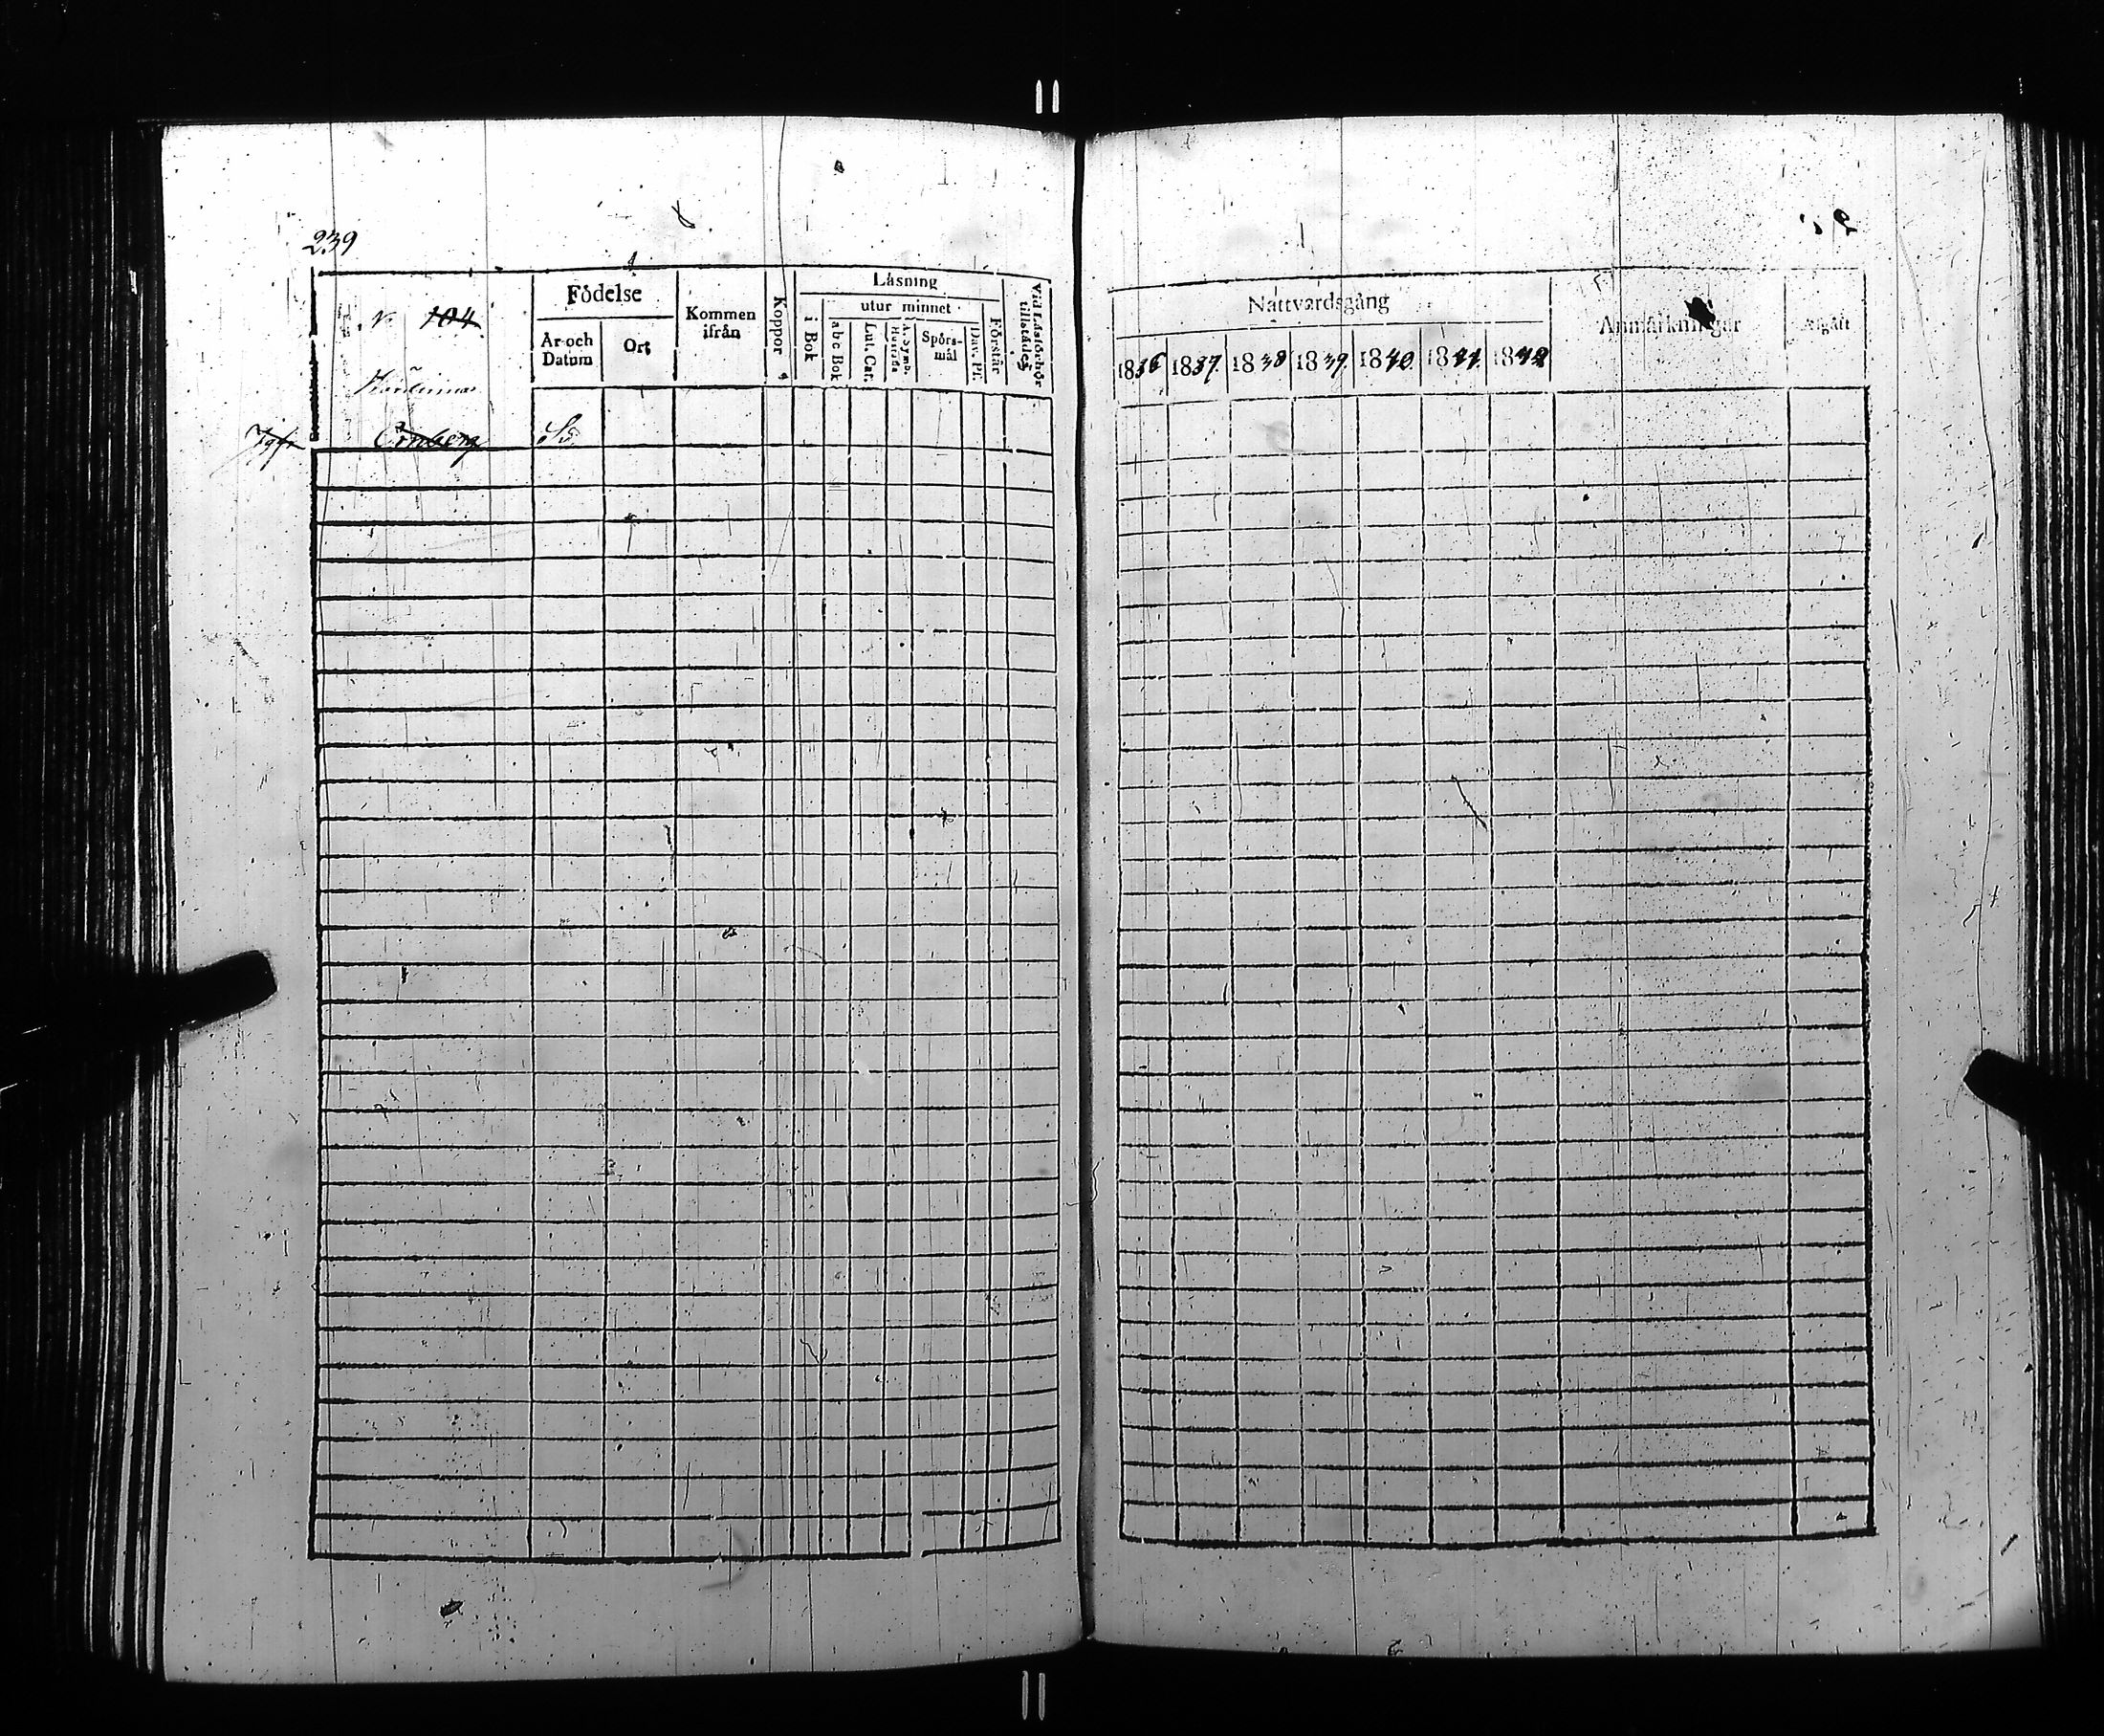 239
N 104
Födelse
År och Datum
Ort
Kommen ifrån
Koppor
Läsning
i Bok
utur minnet
abc Bok
Lut. Cat.
A. Symb. Hustafla
Spörs-mål
Dav. Ps.
Förstår
Vid Läsförhör tillstädes
Jgfr
Nattvardsgång
1836 1837. 1838 1839. 1840. 1841. 1842
Anmärkningar
Afgått